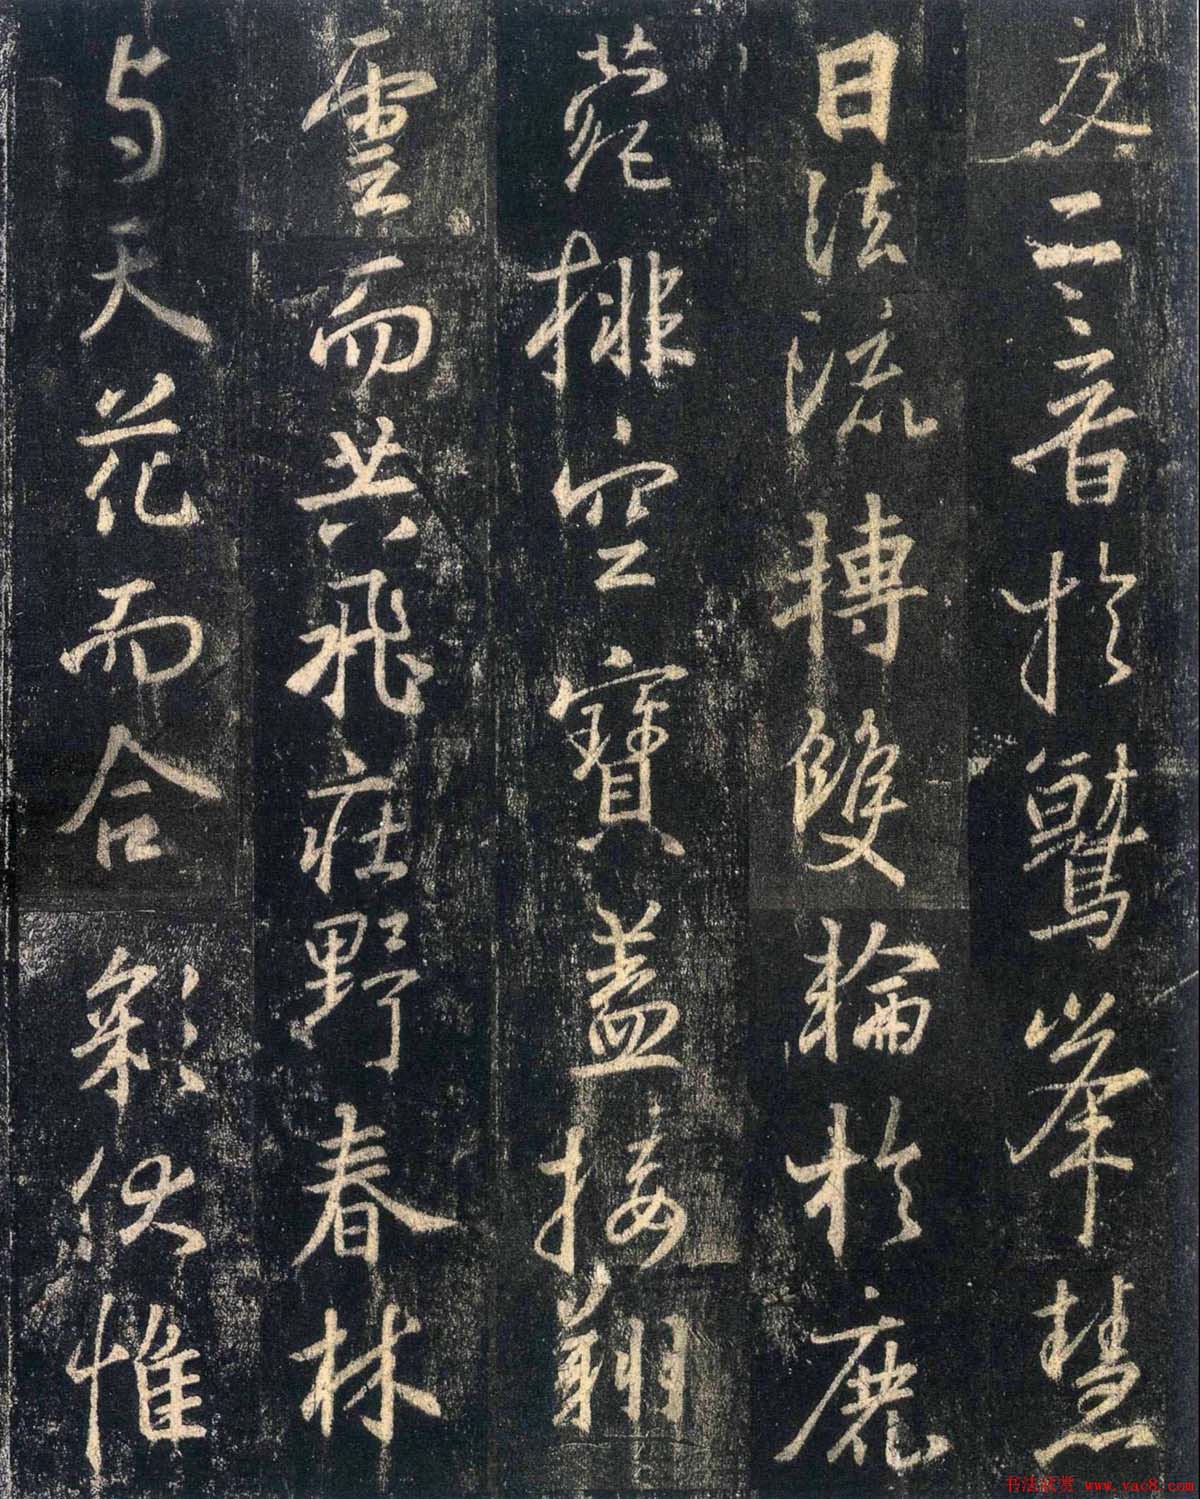 夜二音於鷲峯慧
日法流轉雙輪於鹿
菀排空寶盖接翔
雲而共飛莊野春林
与天花而合彩伏惟
www.yac8.com